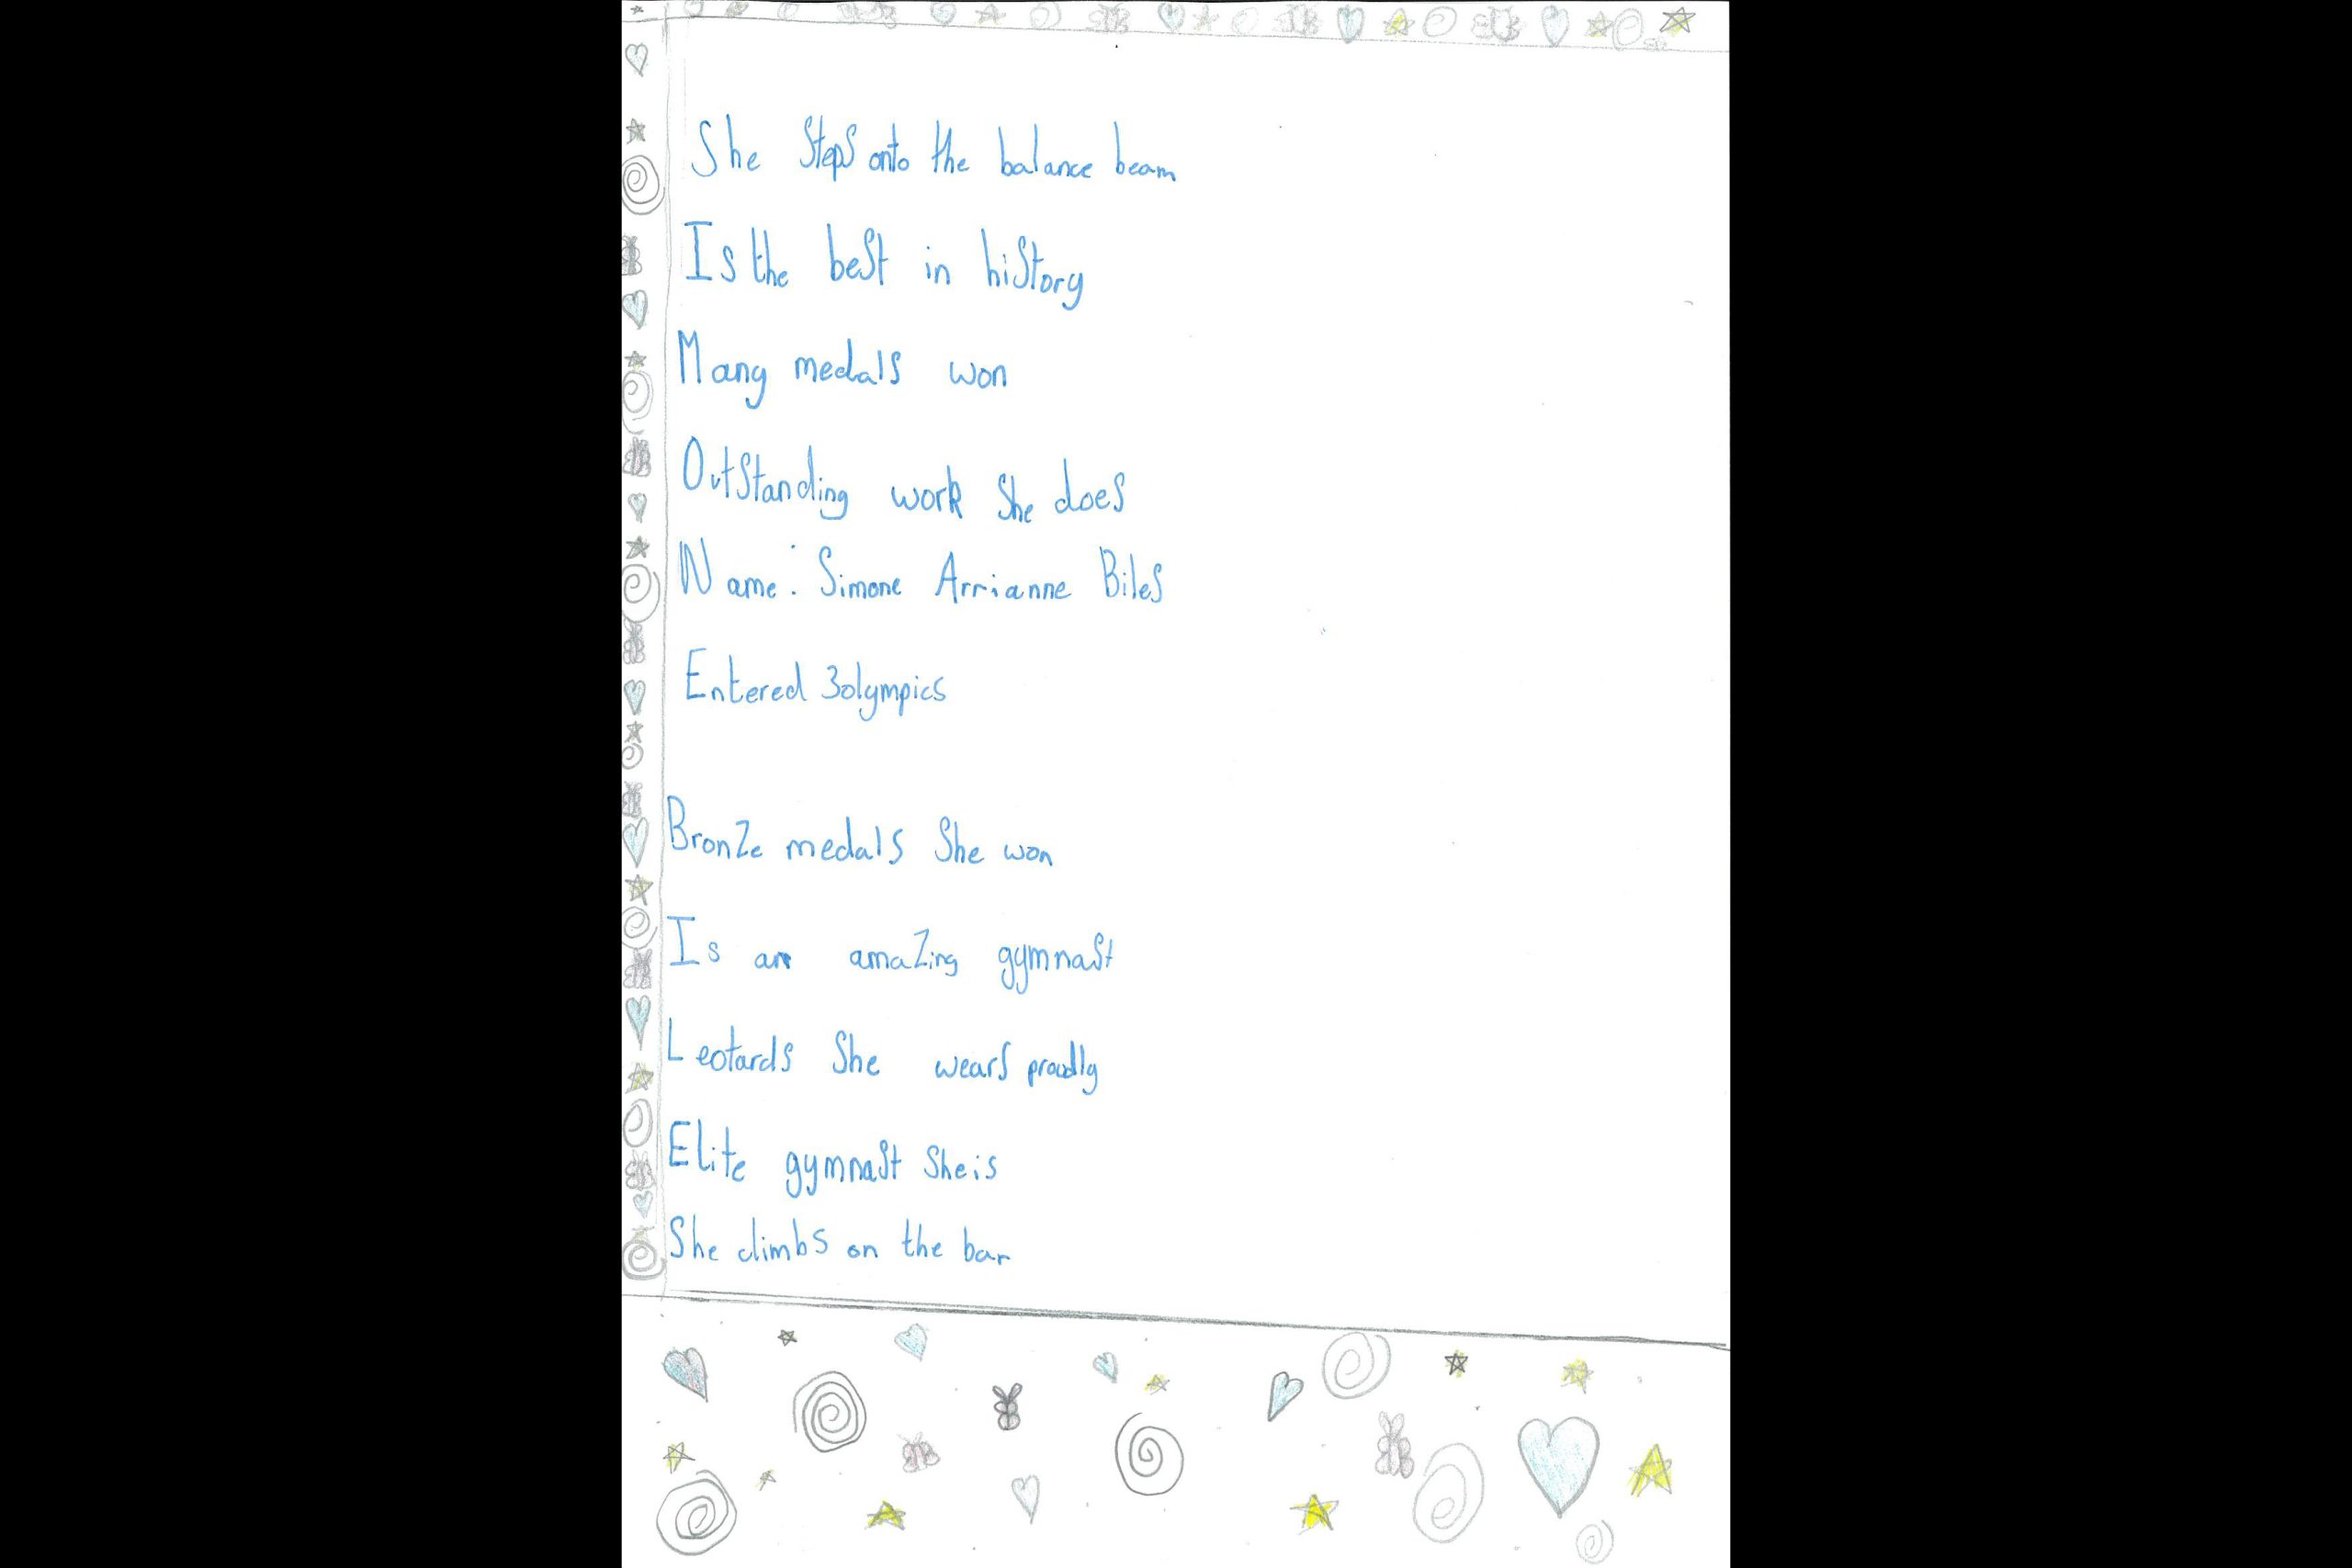 She Steps onto the balance beam
Is the best in history
Many medals won
Outstanding work She does
Name: Simone Arrianne Biles
Entered 3olympics
Bronze medals She won
Is an amazing gymnast
Leotards She wears proudly
Elite gymnast She is
She climbs on the bar